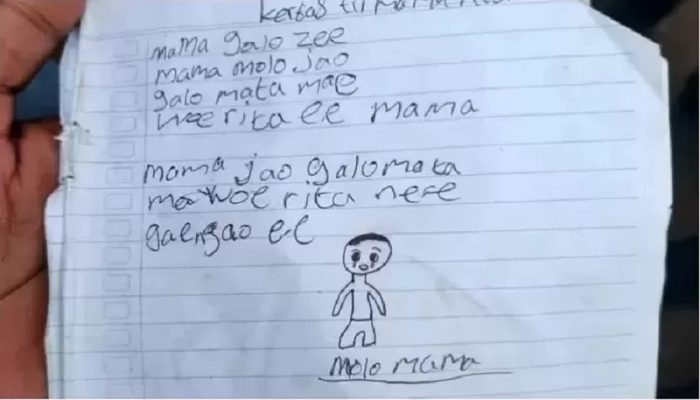 kertas tii mama
mama galo zee
mama molo jao
galo mata mae
woe rita ee mama
mama jao galo mata
mae woe rita ne e e
gae ngao e e
molo mama